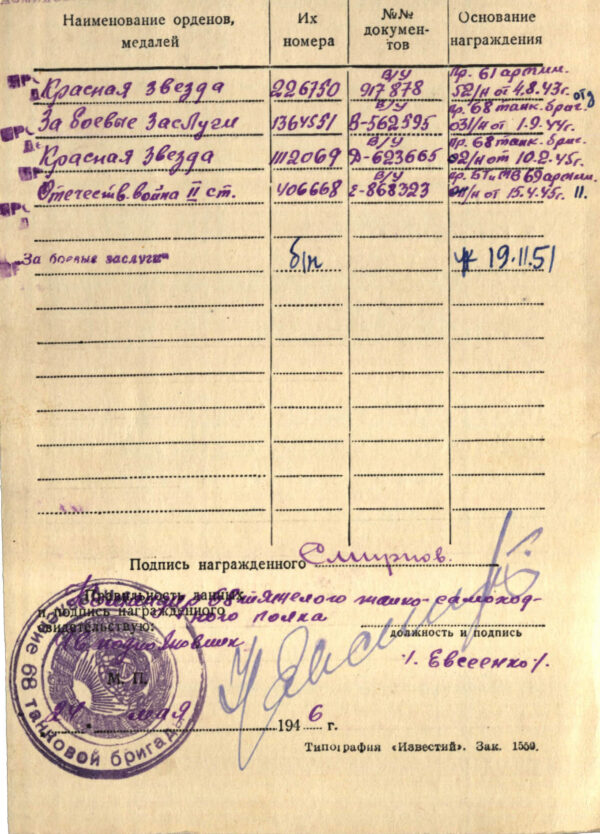 Наименование орденов, медалей
Их номера
№№ документов
Основание награждения
Красная звезда 226750 В/У 917878 Пр. 61 армии. 52/н от 4.8.43г.
За боевые Заслуги 1364551 В/У В-562595 пр. 68 танк. бриг. 031/н от 1.9.44г.
Красная Звезда 1112069 В/У Д-623665 пр. 68 танк. бриг. 02/н от 10.2.45г.
Отечеств. война II ст. 406668 В/У Е-868323 пр. БТ и МВ 69 армии. от 15.4.45г.
За боевые заслуги б/н 19.11.51
Подпись награжденного Смирнов.
Правильность данных
и подпись награжденного
свидетельствую:
68 тяжелого танко-самоход-
ного полка
должность и подпись
/. Евсеенко /.
М. П.
68 танковой бригады
мая 1946 г.
Типография «Известий». Зак. 1550.